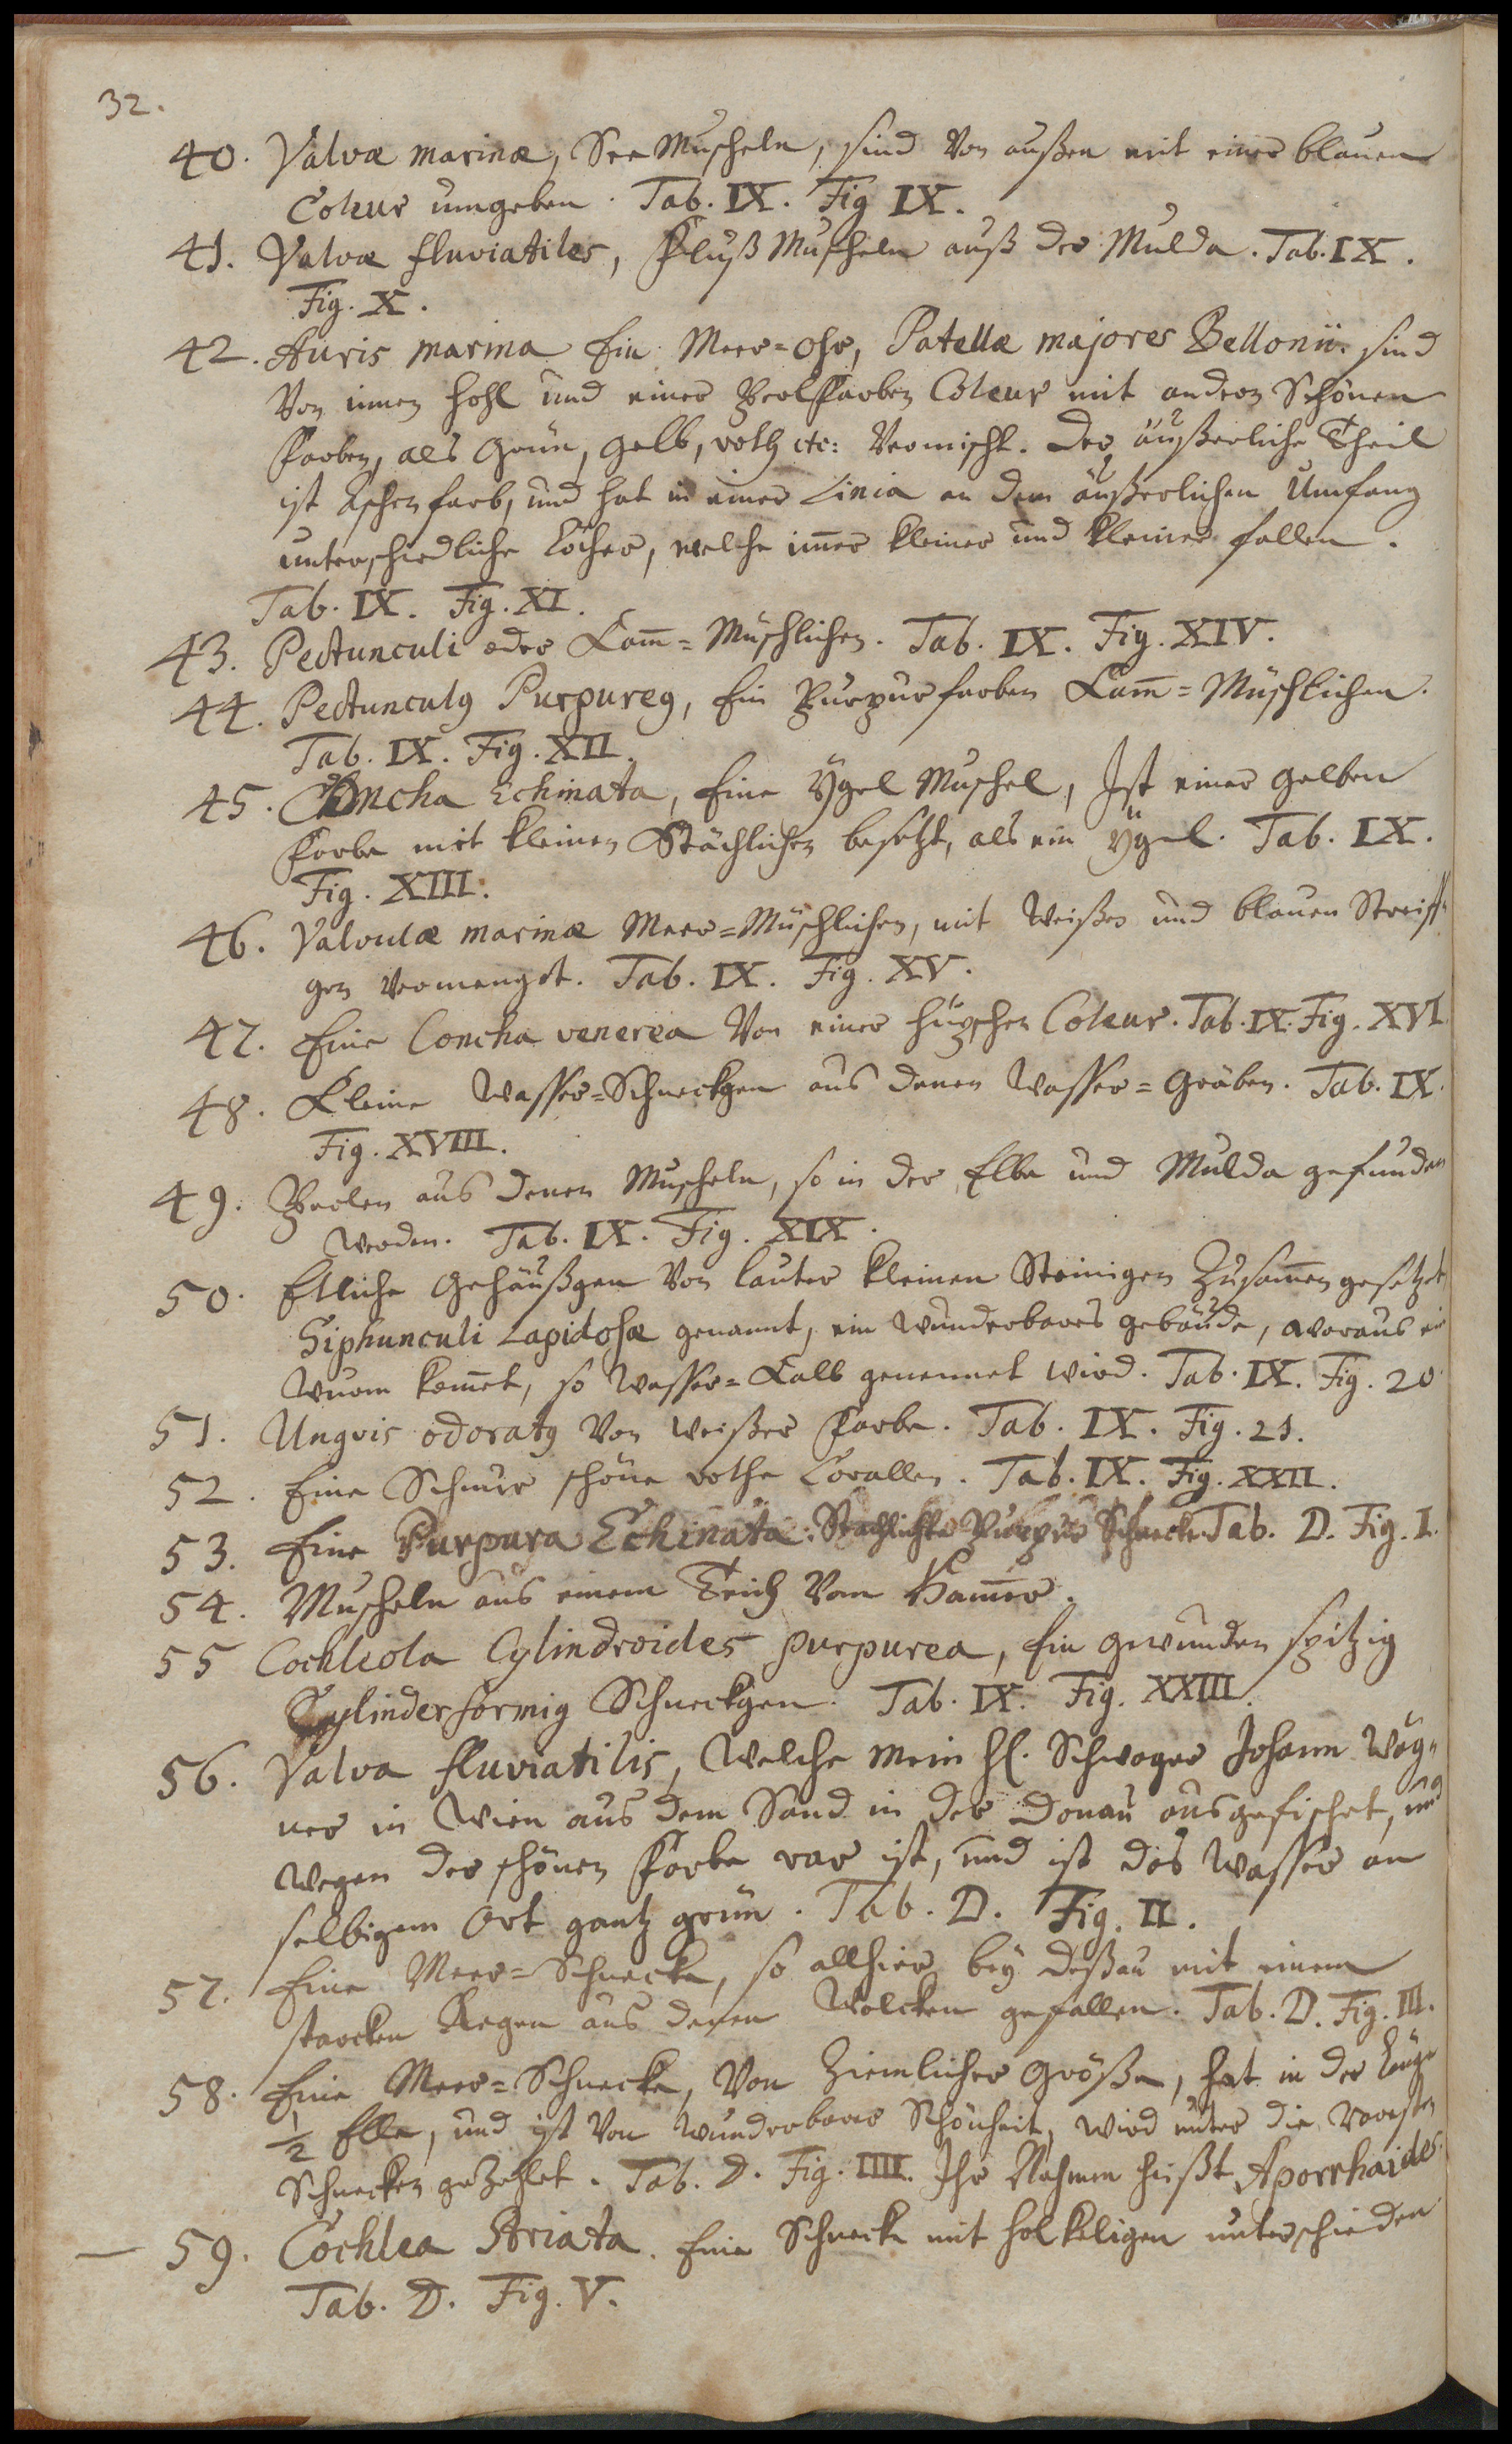 32.
40. Valvæ marinæ, See Muscheln, sind von außen mit einer blauen
Coleur umgeben. Tab. IX. Fig IX.
41. Valvæ fluviatiles, Fluß Muscheln auß der Mulda. Tab. IX.
Fig. X.
42. Auris marina Ein Meer=Ohr, Patellæ majores Bellonii. sind
Von innen hohl und einer Perlfarben Coleur mit andern Schönen
Farben, als Grün, gelb, roth etc: Vermischt. Der äußerliche Theil
ist Aschenfarb, und hat in einer Linia an dem äußerlichen Umfang
unterschiedliche Löcher, welche im̄er kleiner und kleiner fallen.
Tab. IX. Fig. XI.
43. Pectunculi oder Kam̄=Muschlichen. Tab. IX. Fig. XIV.
44. Pectunculꝰ Purpureꝰ, Ein Purpurfarben Kam̄=Müschlichen.
Tab. IX. Fig. XII.
45. Concha Echinata, Eine Ygel Muschel, Ist einer gelben
Farbe mit kleinen Stächlichen besetzt, als ein Ygel. Tab. IX.
Fig. XIII.
46. Valvulæ marinæ Meer=Müschlichen, mit Weißen und blauen Streiff=
gen vermenget. Tab. IX. Fig. XV.
47. Eine Concha venerea Von einer hüpschen Coleur. Tab. IX. Fig. XVI.
48. Kleine Wasser=Schneckgen aus denen Wasser=Gräben. Tab. IX.
Fig. XVIII.
49. Perlen aus denen Muscheln, so in der Elbe und Mulda gefunden
werden. Tab. IX. Fig. XIX.
50. Etliche Gehäußgen Von lauter kleinen Steinigen Zusam̄en gesetzet
Siphunculi Lapidosæ genannt, ein wunderbares gebäude, woraus ein
Wurm kom̄et, so Wasser=Kalb genennet wird. Tab. IX. Fig. 20.
51. Ungvis odoratꝰ Von weißer Farbe. Tab. IX. Fig. 21.
52. Eine Schnur schöne rothe Corallen. Tab. IX. Fig. XXII.
53. Eine Purpura Echinata: Stachlichte Purpur Schnecke Tab. D. Fig. I.
54. Muscheln aus einem Teich Vom Ham̄er.
55 Cochleola Cylindroides purpurea, Ein gewunden spitzig
Cylinderformig Schneckgen. Tab. IX. Fig. XXIII.
56. Valva fluviatilis, Welche Mein H. Schwager Johann Wög=
ner in Wien aus dem Sand in der Donau ausgefischet, und
wegen der schönen Farbe rar ist, und ist das Wasser an
selbigem Ort gantz grün. Tab. D. Fig. II.
57. Eine Meer=Schnecke, so allhier bey Deßau mit einem
starcken Regen aus denen Wolcken gefallen. Tab. D. Fig. III.
58. Eine Meer=Schnecke, Von Ziemlicher Größe, hat in der Länge
1/2 Elle, und ist Von wunderbarer Schönheit, wird unter die raresten
Schnecken gezehlet. Tab. D. Fig. IIII. Ihr Nahmen heißt Aporrhaides.
59. Cochlea Striata. Eine Schnecke mit holkeligen unterschieden
Tab. D. Fig. V.